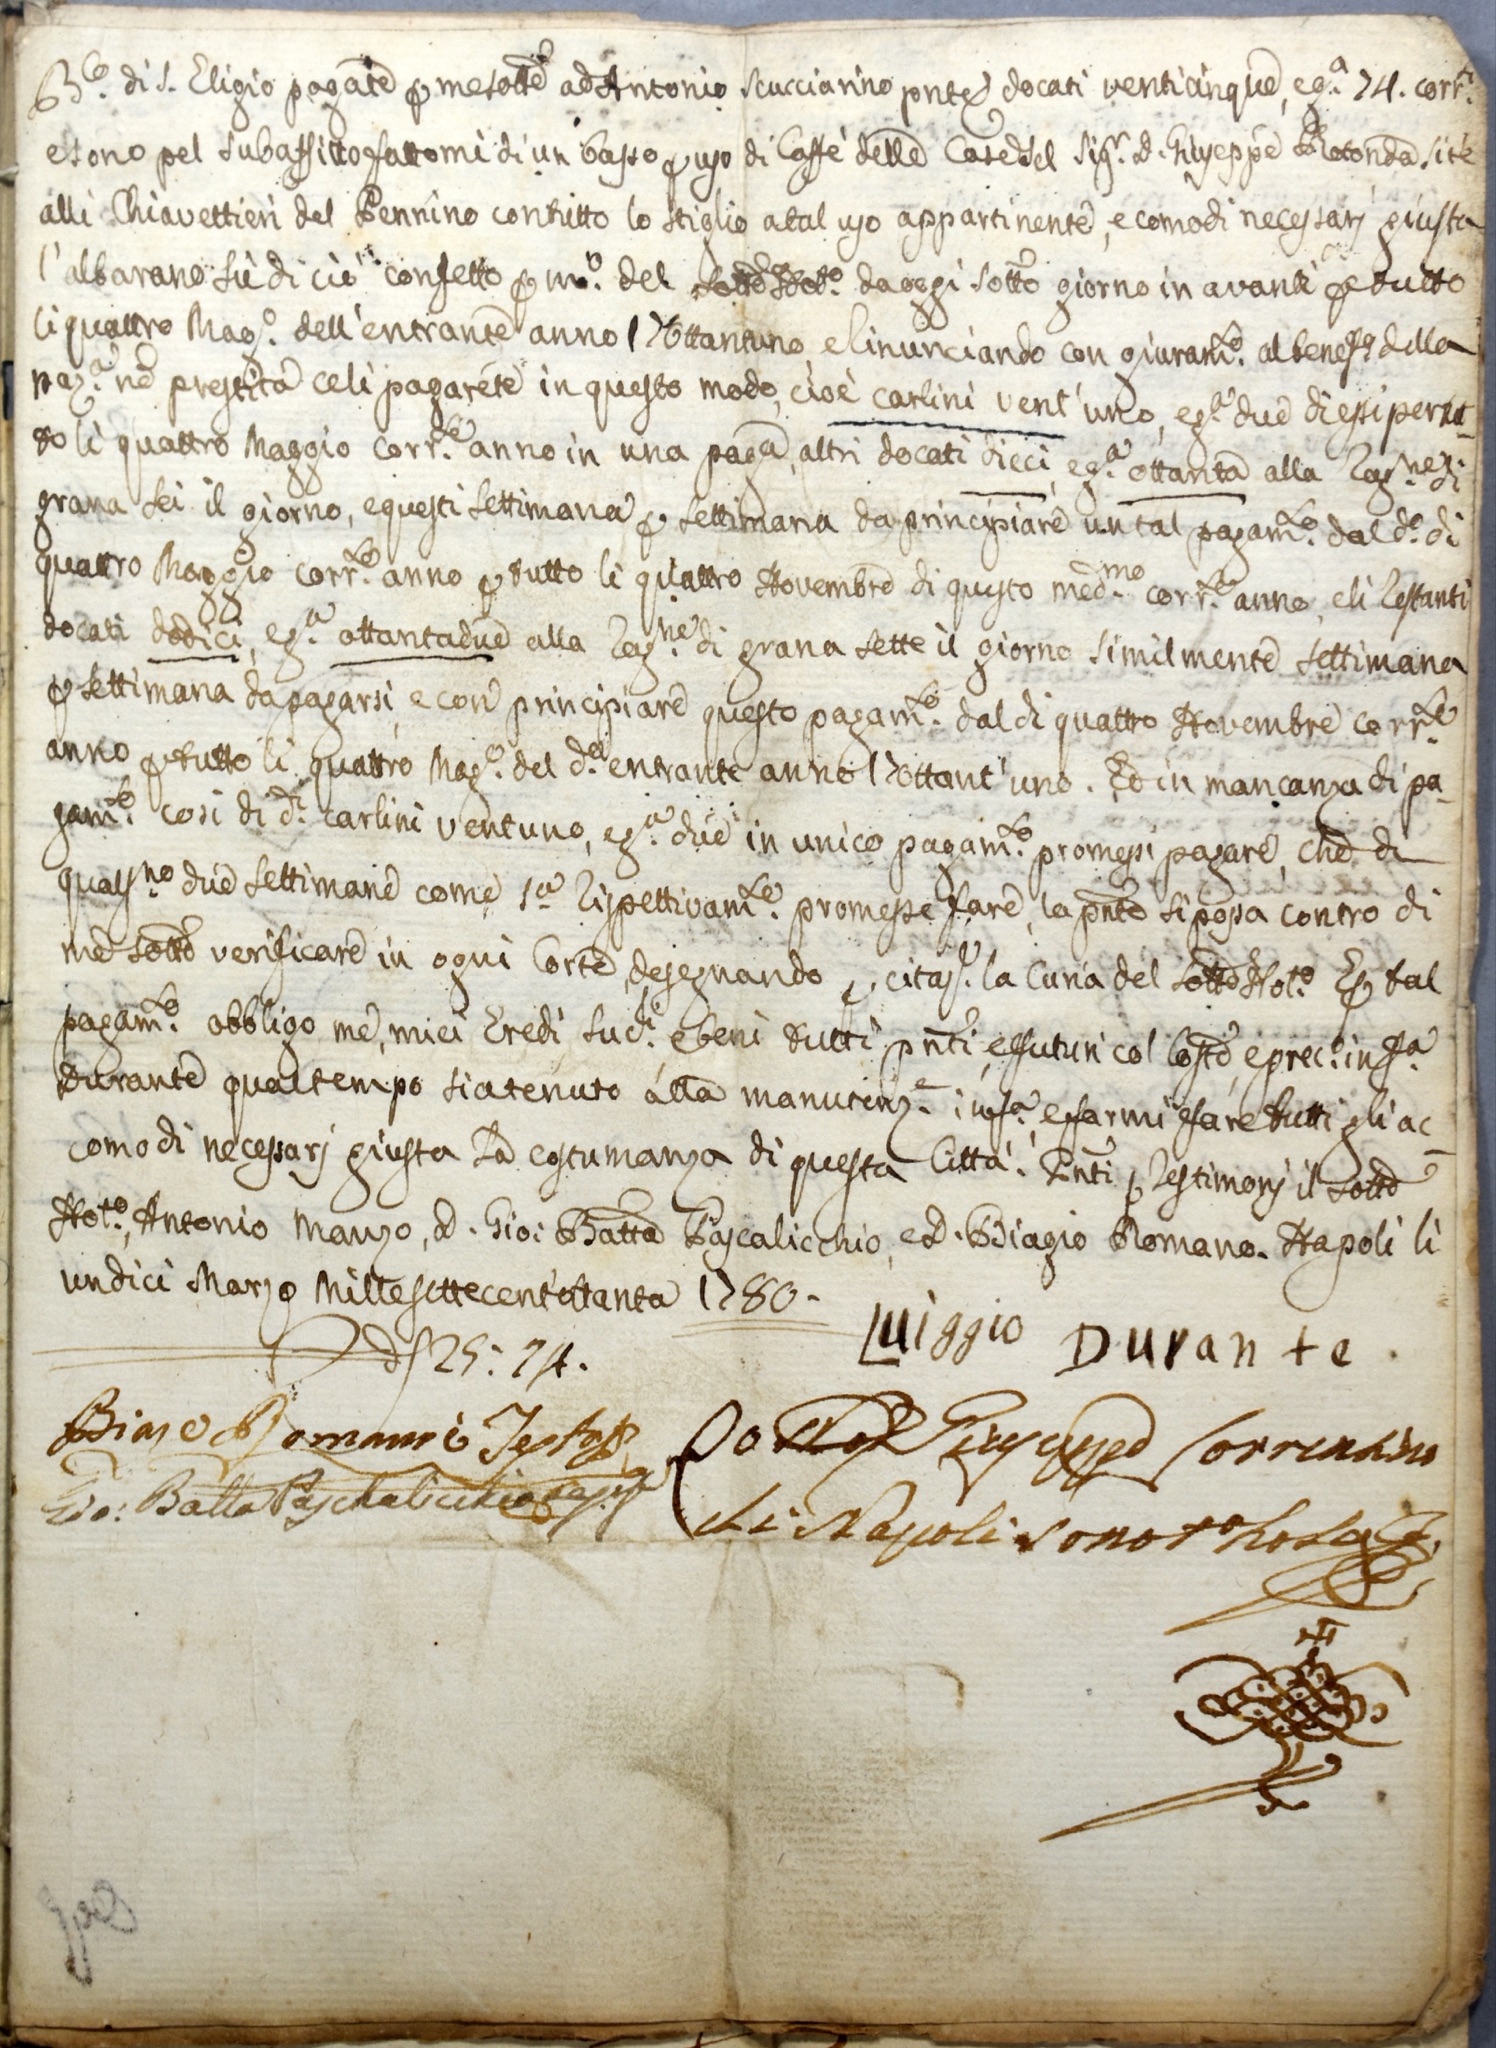 B.co di S. Eligio pagate p me sotto ad Antonio Scucciarino pnte docati venticinque, e g.a 74. corr.ti
e sono pel subaffitto fattomi di un basso p uso di Caffè delle Case del Sig.r D. Giuseppe Rotonda site
alli Chiavettieri del Pennino con tutto lo stiglio a tal uso appartinente, e comodi necessarj giusta
l'albarano sù di ciò confetto p m.o del sotto Not.o da oggi sotto giorno in avanti p tutto
li quattro Mag.o dell'entrante anno 17ottantuno, e linunciando con giuram.to al benef.o della
naz.a nè prestita celi pagarete in questo modo, cioè carlini vent'uno, e g.a due di essi per tut-
to li quattro Maggio corr.te anno in una paga, altri docati dieci, e g.a ottanta alla rag.ne di
grana sei il giorno, e questi settimana p settimana da principiare un tal pagam.to dal d.o dì
quattro Maggio corr.te anno p tutto li quattro Novembre di questo med.mo corr.te anno, e li restanti
docati dodici, e g.a ottantadue alla rag.ne di grana sette il giorno similmente settimana
p settimana da pagarsi, e con principiare questo pagam.to dal dì quattro Novembre corr.te
anno p tutto li quattro Mag.o del d.o entrante anno 17ottant'uno. Ed in mancanza di pa-
gam.to così di d.i carlini ventuno, e g.a due in unico pagam.to promessi pagare, che di
quals.no due settimane come s.a rispettivam.te promesse fare, la pnte si possa contro di
me sotto verificare in ogni Corte, desegnando p citaz. la Curia del sotto Not.o E p tal
pagam.to obbligo me, miei Eredi, suc.ri e beni tutti pnti, e futuri col Costo, e prec.o in f.a
durante qual tempo sia tenuto alla manutenz.e in f.a e farmi fare tutti gli ac-
comodi necessarj giusta la costumanza di questa Città. Pnti p Testimonj il sotto
Not.o, Antonio Manzo, D. Gio: Batta Pascalicchio, e D. Biagio Romano. Napoli li
undici Marzo Millesettecent'ottanta 1780.
D 25: 74.
Luiggio Durante.
Biaso Romano Test.
Gio: Batta Paschalicchio Test.
Io Not.r Giuseppe Sorrentino
di Napoli sono